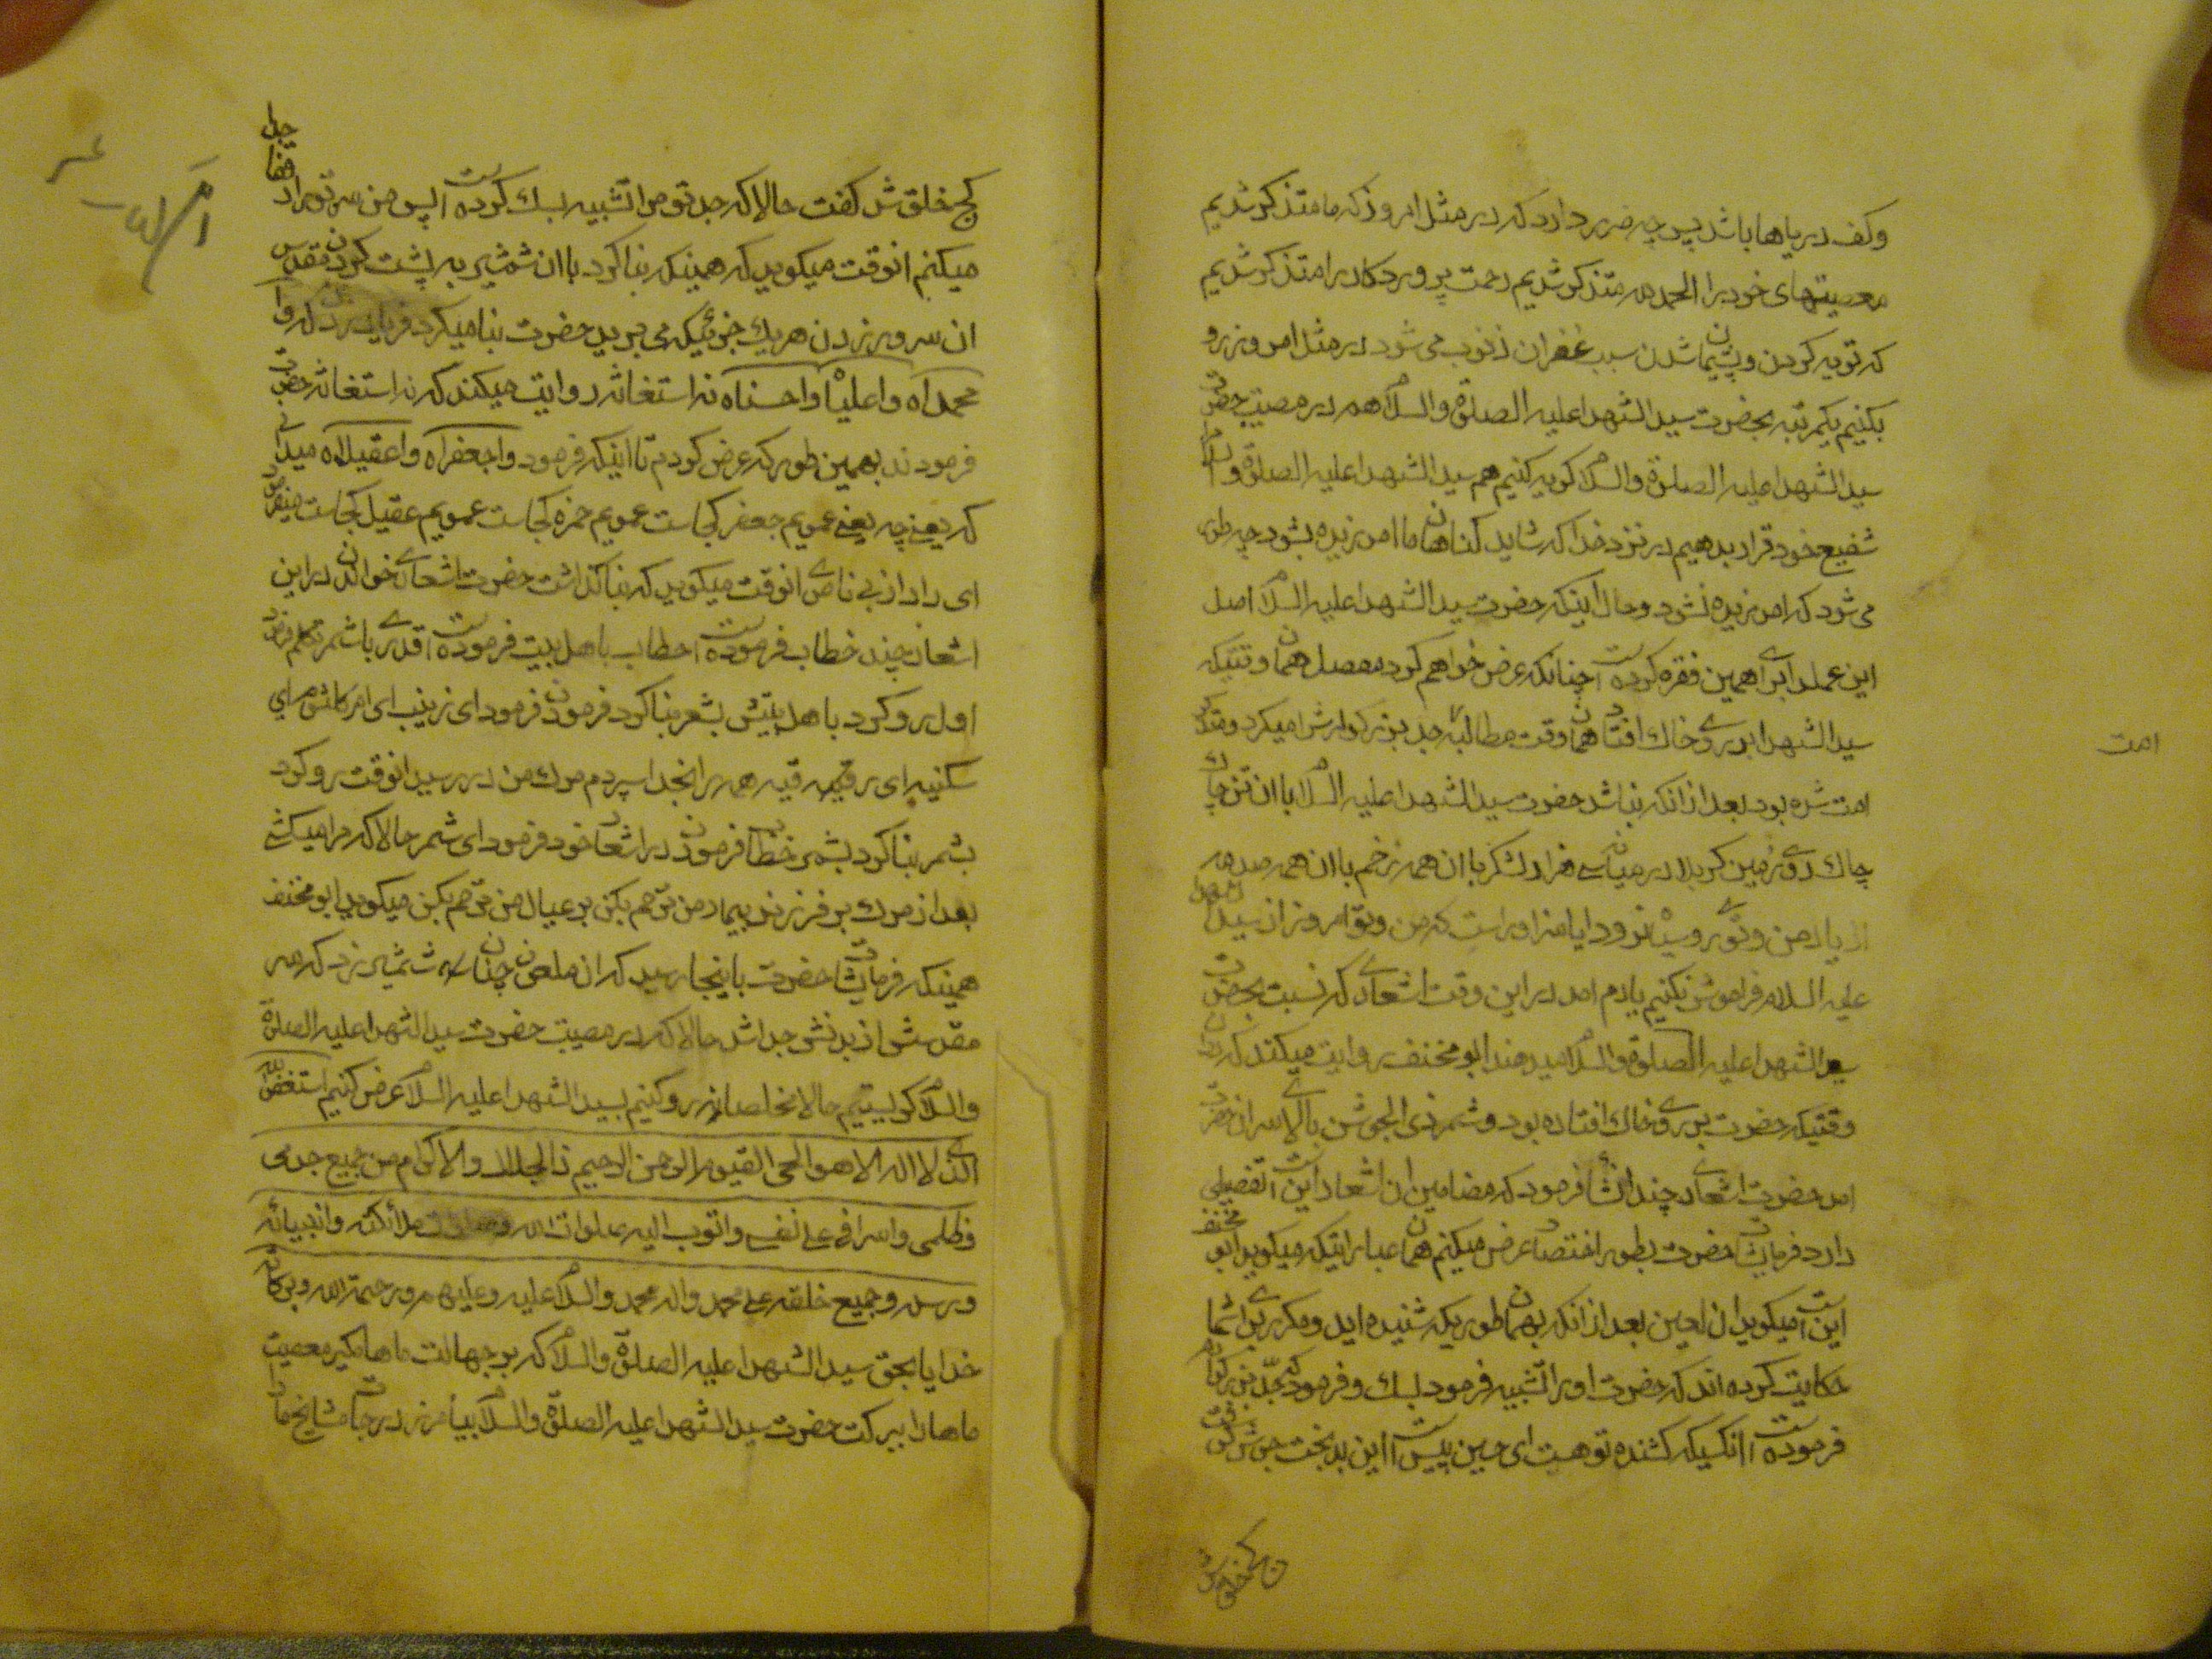 وکف دریاها باشد پس چه ضرر دارد که در مثل امروز که ما متذکر شدیم
معصیتهای خود را الحمد لله متذکر شدیم رحمت پروردکار را متذکر شدیم
که توبه کردن و پشیمان شدن سبب غفران ذنوب می شود در مثل امروز رو
بکنیم یکمرتبه بحضرت سید الشهدا علیه الصلوة والسلام هم در مصیبت حضرت
سید الشهدا علیه الصلوة والسلام کریه کنیم هم سید الشهدا علیه الصلوة و السلام را
شفیع خود قرار بدهیم در نزد خدا که شاید کناهان ما امرزیده بشود چه طور
می شود که امرزیده نشود و حال اینکه حضرت سید الشهدا علیه السلام اصل
این عمل را برای همین فقره کرده است چنانکه عرض خواهم کرد مفصل همان وقتیکه
سید الشهدا بر روی خاک افتاد همان وقت مطالبه جد بزرکوارش را میکرد و متذکر
امت شده بود بعد از انکه بنا شد حضرت سید الشهدا علیه السلام با ان تن چاک
چاک روی زمین کربلا در میان سی هزار لشکر با ان همه زخم با ان همه صدمه
از یاد من و توی رو سیاه نرود ایا سزاوار است که من و تو امروز از سید الشهدا
علیه السلام فراموش نکنیم یادم امد در این وقت اشعاری که نسبت بحضرت
سید الشهدا علیه الصلوة والسلام میدهند ابو مخنف روایت میکند که
وقتیکه حضرت بر روی خاک افتاده بود و شمر ذی الجوشن بالای سر ان حضرت
امد حضرت اشعاری چند انشا فرمود که مضامین ان اشعار این است تفصیلی
دارد فرمایشات حضرت بطور اختصار عرض میکنم همان عبارتیکه میکوید ابو مخنف
این است میکوید ان لعین بعد از انکه بهمان طوریکه شنیده اید و مکرر برای شما
حکایت کرده اند که حضرت او را تشبیه فرمود بسک و فرمود که جد من
فرموده است انکسیکه کشنده تو هست ای حسین پیس است این بدبخت
کج خلق شد کفت حالا که جد تو مرا تشبیه بسک کرده است پس من سر تو را از قفا جدا
میکنم انوقت میکوید که همینکه بنا کرد با ان شمشیر به پشت کردن مقدس
ان سرور زدن هر یک جزئیکه می برید حضرت بنا میکرد فریاد زدن که وا
محمداه واعلیاه واحسناه نه استغاثه روایت میکند که نه استغاثه حضرت
فرمودند بهمین طور که عرض کردم تا اینکه فرمود واجعفراه واعقیلاه میدانی
که یعنی چه یعنی عمویم جعفر کجاست عمویم حمزه کجاست عمویم عقیل کجاست
ای داد از بی ناصری انوقت میکوید که بنا کذاشت حضرت اشعاری خواندن در این
اشعار چند خطاب فرموده است خطاب باهل بیت فرموده است قدری با شمر تکلم فرمود
اول رو کرد باهل بیتش بشعر بنا کرد فرمودن فرمود ای زینب ای ام کلثوم ای
سکنیه ای رقیه همه را بخدا سپردم مرک من در رسید انوقت رو کرد
بشمر بنا کرد بشمر خطاب فرمودن در اشعار خود فرمود ای شمر حالا که مرا میکشی
بعد از مرک بر فرزند بیمار من ترحم بکن بر عیال من ترحم بکن میکوید ابو مخنف
همینکه فرمایشات حضرت باینجا رسید که ان ملعون چنان شمشیر زد که سر
مقدسش از بدنش جدا شد حالا که در مصیبت حضرت سید الشهدا علیه الصلوة
والسلام کریستیم حالا مخلصانه رو کنیم بسید الشهدا علیه السلام عرض کنیم استغفر الله
الذی لا اله الا هو الحی القیوم الرحمن الرحیم ذا الجلال والاکرام من جمیع جرمی
وظلمی واسرافی علی نفسی واتوب الیه صلوات الله وصلوات ملائکته وانبیائه
ورسله وجمیع خلقه علی محمد وال محمد والسلام علیه وعلیهم ورحمة الله وبرکاته
خدایا بحق سید الشهدا علیه الصلوة والسلام که بر جهالت ماها مکیر معصیت
ماها را ببرکت حضرت سید الشهدا علیه الصلوة والسلام بیامرز
امت